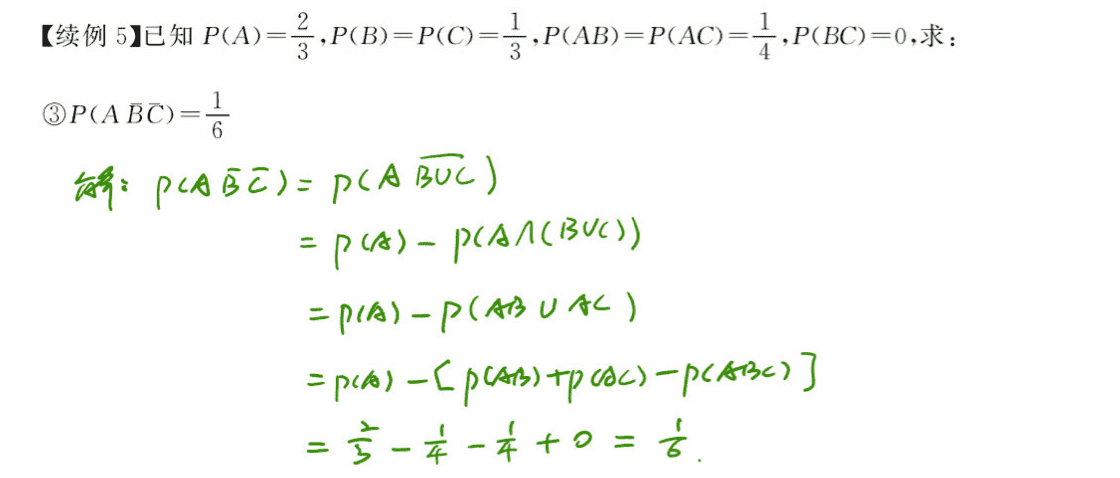 【续例 5】已知 P(A)=2/3,P(B)=P(C)=1/3,P(AB)=P(AC)=1/4,P(BC)=0,求:
③P(A B̄C̄)=1/6
解: P(A B̄ C̄) = P(A \overline{B∪C})
= P(A) - P(A∩(B∪C))
= P(A) - P(AB ∪ AC)
= P(A) - [P(AB)+P(AC)-P(ABC)]
= 2/3 - 1/4 - 1/4 + 0 = 1/6.